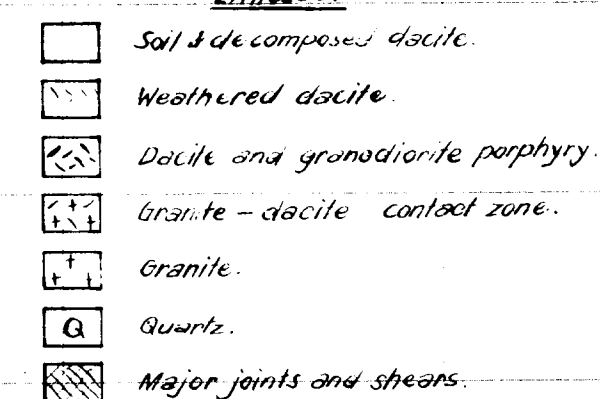 Soil & decomposed dacite.
Weathered dacite.
Dacite and granodiorite porphyry.
Granite - dacite contact zone.
Granite.
Q Quartz.
Major joints and shears.